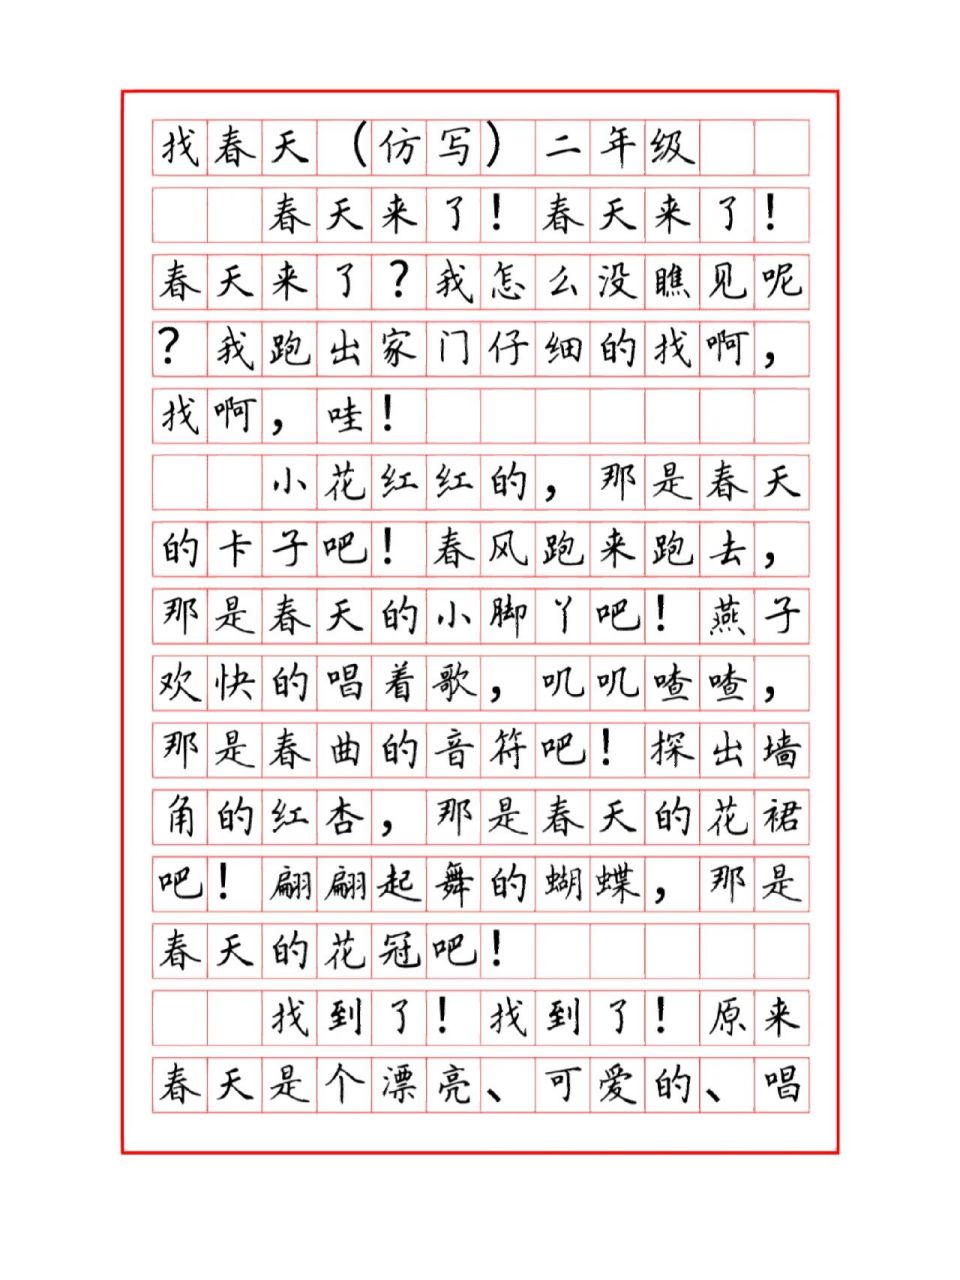 找春天（仿写）二年级
春天来了！春天来了！
春天来了？我怎么没瞧见呢
？我跑出家门仔细的找啊，
找啊，哇！
小花红红的，那是春天
的卡子吧！春风跑来跑去，
那是春天的小脚丫吧！燕子
欢快的唱着歌，叽叽喳喳，
那是春曲的音符吧！探出墙
角的红杏，那是春天的花裙
吧！翩翩起舞的蝴蝶，那是
春天的花冠吧！
找到了！找到了！原来
春天是个漂亮、可爱的、唱